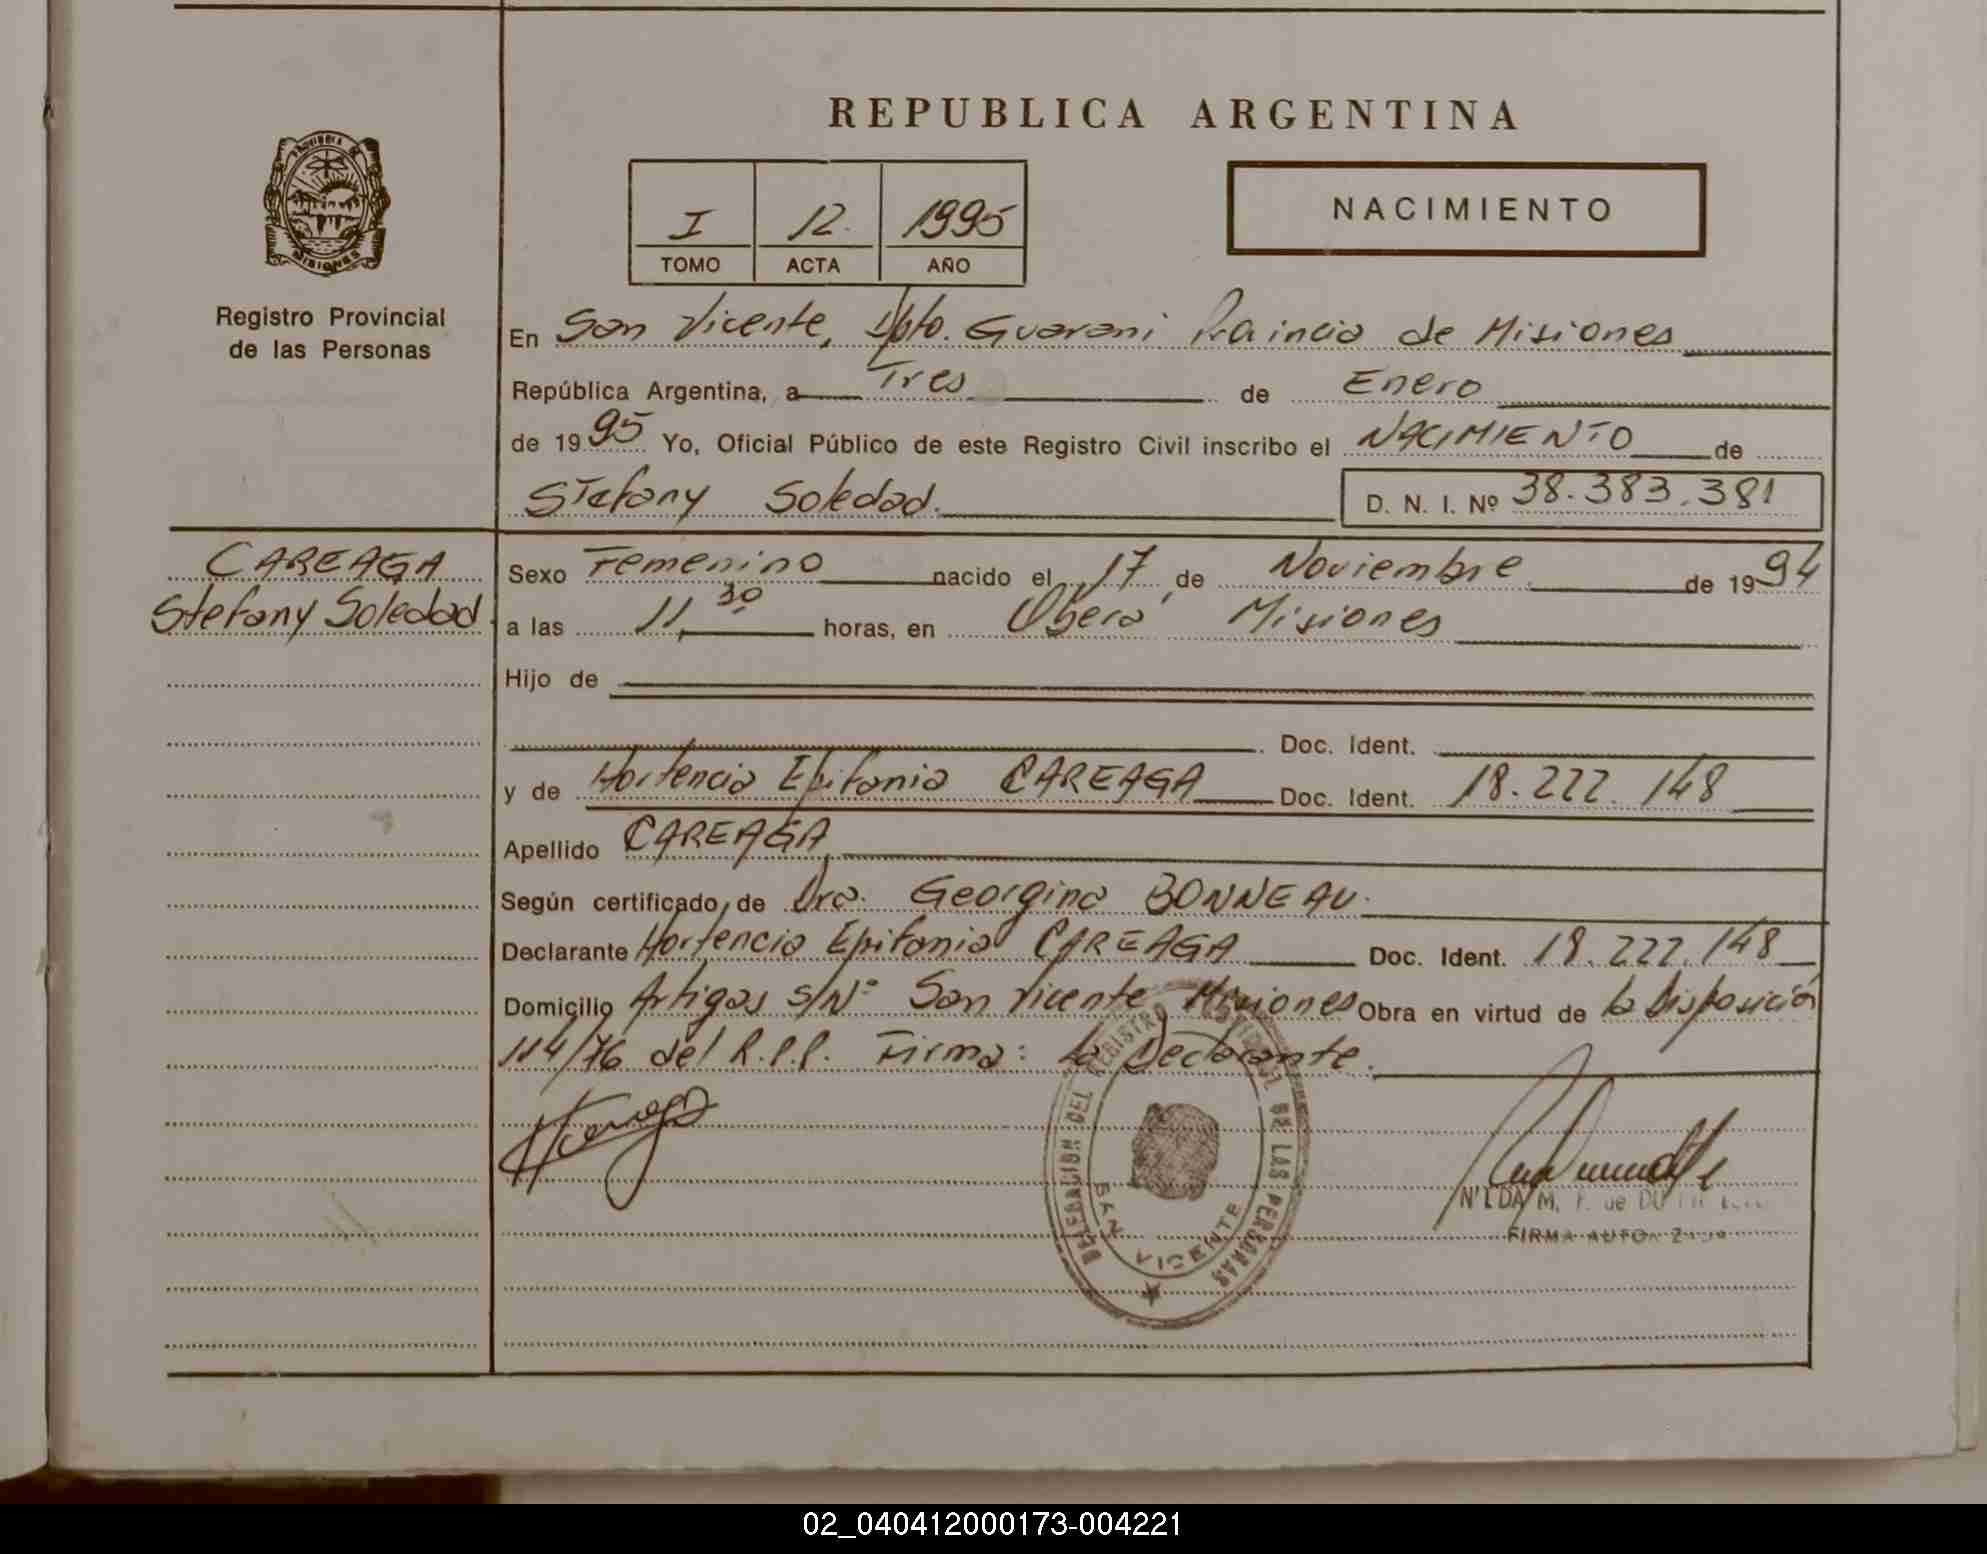 REPUBLICA ARGENTINA
PROVINCIA DE
MISIONES
Registro Provincial
de las Personas
I 12. 1995
TOMO ACTA AÑO
NACIMIENTO
En San Vicente, Dpto. Guarani Provincia de Misiones
República Argentina, a Tres de Enero
de 1995 Yo, Oficial Público de este Registro Civil inscribo el NACIMIENTO de
Stefany Soledad. D. N. I. Nº 38.383.381
CAREAGA
Stefany Soledad
Sexo Femenino nacido el 17 de Noviembre de 1994
a las 11,30 horas, en Oberá, Misiones
Hijo de
Doc. Ident.
y de Hortencia Epifania CAREAGA Doc. Ident. 18.222.148
Apellido CAREAGA
Según certificado de Dra. Georgina BONNEAU.
Declarante Hortencia Epifania CAREAGA Doc. Ident. 18.222.148
Domicilio Artigas S/Nº San Vicente, Misiones Obra en virtud de la Disposición
114/76 del R.P.P. Firma: La Declarante.
DELEGACION DEL REGISTRO PROVINCIAL DE LAS PERSONAS
SAN VICENTE
FIRMA AUTORIZADA
02_040412000173-004221